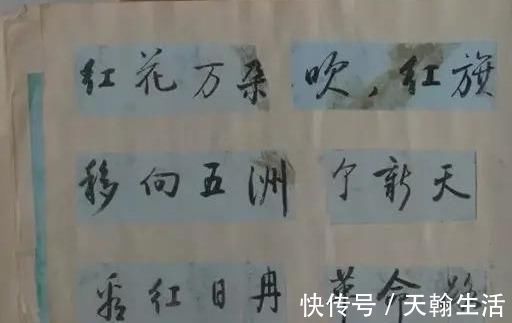 红花万朵 吹，红旗
移向五洲 个新天
看红日冉 革命路
快传号/天翰生活